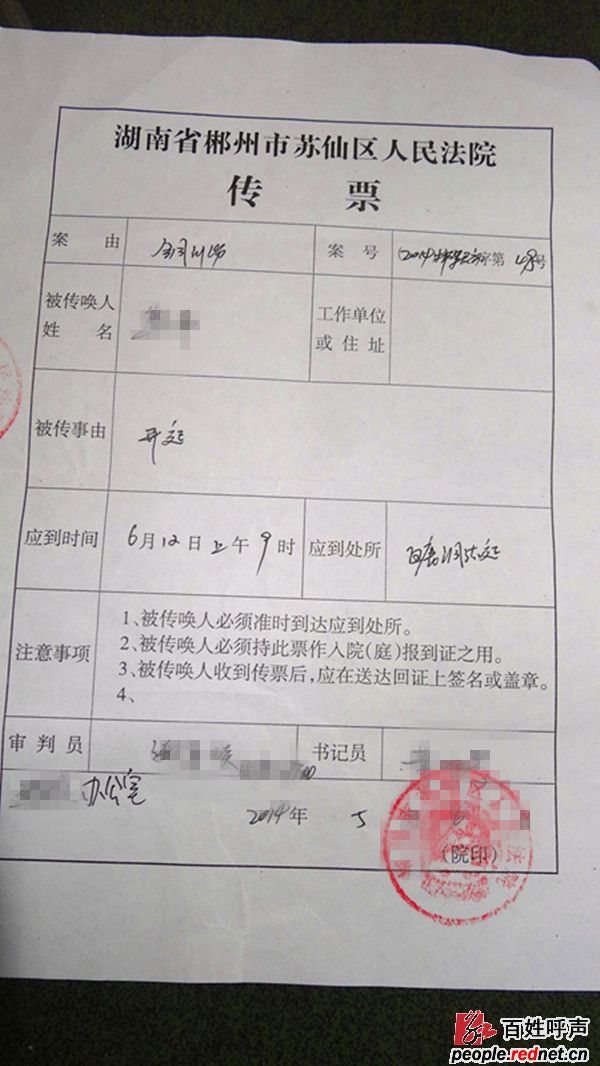 湖南省郴州市苏仙区人民法院
传 票
案 由 合同纠纷 案 号 (2014) 字第 号
被传唤人
姓 名
工作单位
或 住 址
被传事由 开庭
应到时间 6月12日上午9时 应到处所 法庭
注意事项
1、被传唤人必须准时到达应到处所。
2、被传唤人必须持此票作入院(庭)报到证之用。
3、被传唤人收到传票后,应在送达回证上签名或盖章。
4、
审 判 员 书记员
办公室
2014年 5
(院印)
百姓呼声
people.rednet.cn